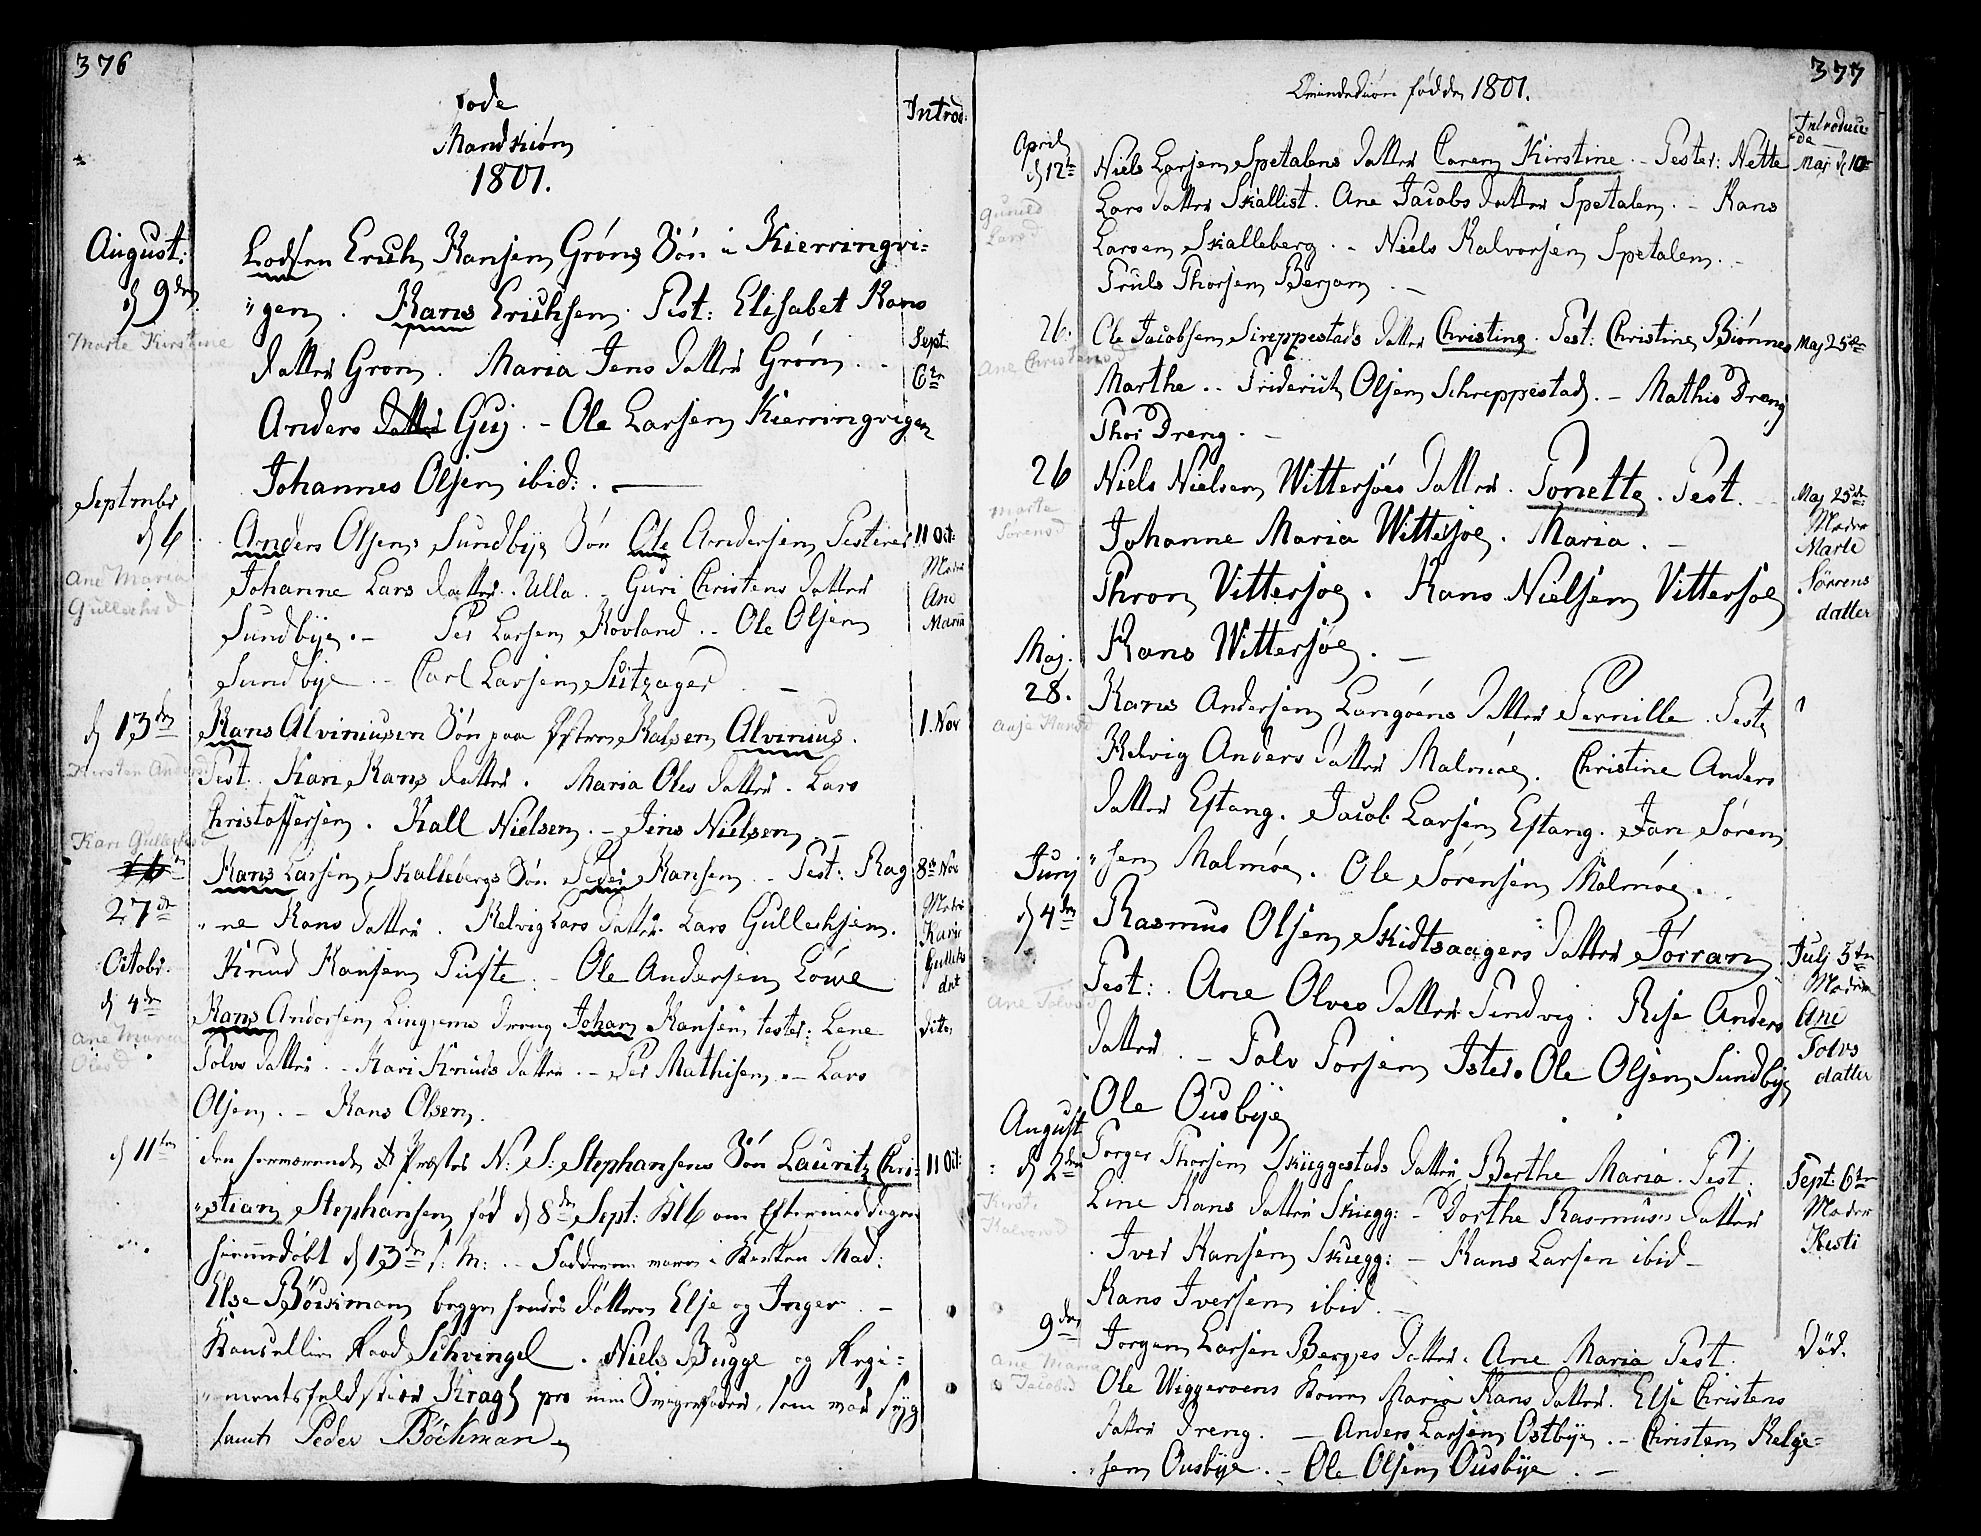 376
Føde
Mandkiøn
1801.
Introd:
August:
d 9de
Marte Kirstine
Lodsen Erich Hansen Grøns Søn i Kierringvi=
"gen. Hans Erichsen. Test: Elisabet Hans
datter Grøn. Maria Jens datter Grøn. -
Anders datter Guj. - Ole Larsen Kierringvigen
Johannes Olsen ibid:. —
Sept:
6te
Septembr
d 6
Ane Maria
Gulleichsd
Anders Olsens Sundbye Søn Ole Andersen Testes
Johanne Lars datter. Ulla. - Guri Christens datter
Sundbye. - Per Larsen Hovland. - Ole Olsen
Sundbye. - Carl Larsen
11 Oct:
Moder
Ane
Maria
d 13de
Kirsten Andersd
Hans Alviniusen Søn paa Østre Halsen Alvinius.
Test. Kari Hans datter. Maria Oles datter. Lars
Christoffersen. Hall Nielsen. - Jens Nielsen. -
1. Nov
Kari Gulleichsd
27de
Hans Larsen Skallebergs Søn Peder Hansen. - Test: Rag
"ne Hans datter. Helvig Lars datter. Lars Gulleichsen.
Knud Hansen Tufte. - Ole Andersen Løwe
8de Nov
Moder
Karie
Gulleks
dat
Octobr.
d 4de
Ane Maria
Oles d
Hans Andersen Lingums Dreng Johan Hansen, tester: Lene
Tolvs datter. - Kari Knuds datter. - Per Mathisen. - Lars
Olsen. - Hans Olsen.
dito
d 11te
den forværende Præstes N: S: Stephansens Søn Lauritz Chri=
"stian Stephansen, fød d 8de Sept: Kl 6 om Eftermiddagen
hiemmedøbt d 13de s: M:. - Fadderne vare i Kirken Mad:
Else Böckman, begge hendes døttre Else og Inger. -
Cancellie Raad Schvingel. Niels Bugge og Regi=
"mentsfeldskier Kragh pro min Svigerfader, som var syg
samt Peder Böckman
11 Oct:
377
Qvindekiøn fødde 1801.
Introduce
de
April
d 12te
Gunild
Larsd
Niels Larsen Spetalens datter Caren Kirstine. - Tester: Nette
Lars datter Skallist. Ane Jacobs datter Spetalen. - Hans
Larsen Skalleberg. - Niels Halvorsen Spetalen. -
Truls Thorsen Bergan. -
Maj d 10de
26.
Ane Christensd
Ole Jacobsen Sireppestads datter Christine. Test: Christine Biønnes
Marthe. - Friderich Olsen Schreppestad. - Mathis Dreng
Thor Dreng. -
Maj 25de
26
Marte
Sørensd
Niels Nielsen Wittersøes datter. Tonette. Test. -
Johanne Maria Wittersøe. Maria. -
Thron Vittersøe. Hans Nielsen Vittersøe
Hans Wittersøe. -
Maj 25de
Moder
Marte
Sörrens
datter
Maj.
28.
Hans Andersen Langøens datter Pernille. Teste
Helvig Anders datter Malmøe. Christine Anders
datter Estang. Jacob Larsen Estang. Jan Søren
"sen Malmøe. Ole Sørensen Malmøe. -
Junj
d 4de
Ane Tolvsd
Rasmus Olsen Skidtsaagers datter Torran
Test: Ane Olves datter Sindvig. Rise Anders
datter. - Tolv Torsen Istre. Ole Olsen Sundbye
Ole Ousbye
Julj 5te
Moderen
Ane
Tolvs
datter
August
d 2den
Kirsti
Halvorsd
Torger Thorsen Skieggestads datter Berthe Maria. Test:
Line Hans datter Skiegg: - Dorthe Rasmus datter
Iver Hansen Skiegg: - Hans Larsen ibid -
Hans Iversen ibid. -
Sept: 6te
Moder
Kesti
9de
Ane Maria
Jacobsd
Jorgen Larsen Berges datter. Ane Maria Test.
Ole Wiggeroens Kone, Maria Hans datter. Else Christens
datter Dreng. - Anders Larsen Ostbye. - Christen Helge=
"sen Ousbye. - Ole Olsen Ousbye. -
Død.